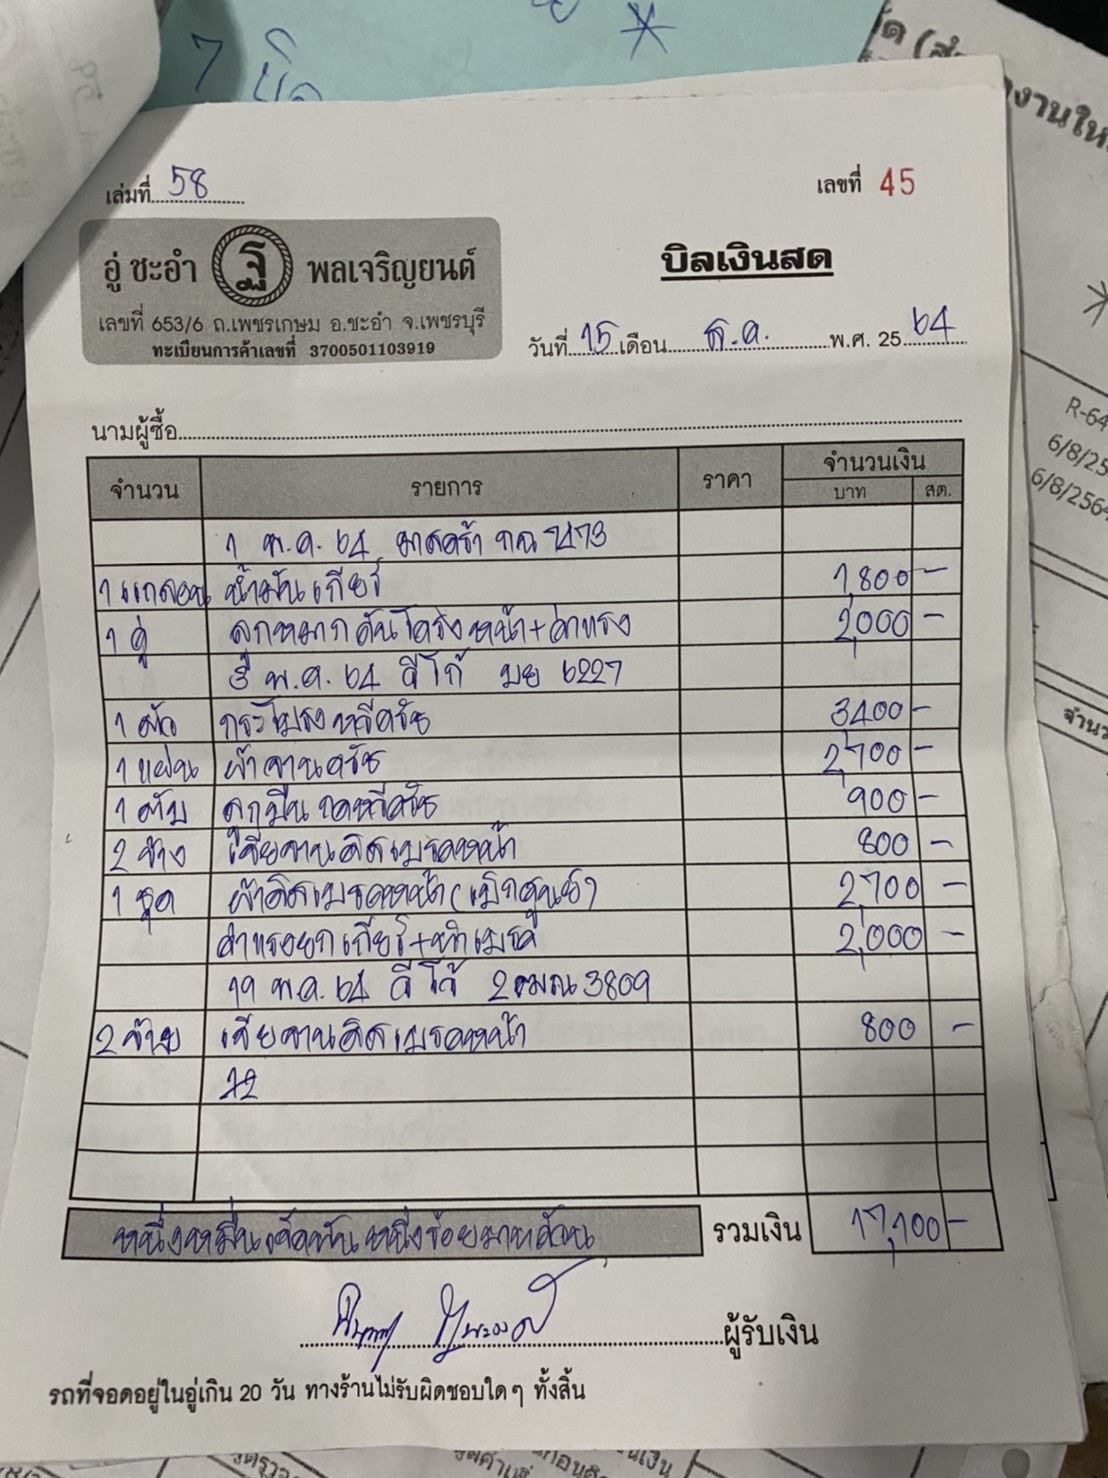 7 บิล
เล่มที่ 58
เลขที่ 45
อู่ ชะอำ ฐ พลเจริญยนต์
เลขที่ 653/6 ถ.เพชรเกษม อ.ชะอำ จ.เพชรบุรี
ทะเบียนการค้าเลขที่ 3700501103919
บิลเงินสด
วันที่ 15 เดือน ต.ค. พ.ศ. 25 64
นามผู้ซื้อ
จำนวน รายการ ราคา จำนวนเงิน
บาท สต.
1 พ.ค. 64 มาสด้า 7473
1 แกลอน น้ำมันเกียร์ 1,800 -
1 คู่ ลูกหมากคันโครงหน้า+ค่าแรง 2,000 -
3 พ.ค. 64 ดีโก้ บย 6227
1 ตัว กระโปรงหวีครัช 3,400 -
1 แผ่น ผ้าจานครัช 2,700 -
1 ตับ ลูกปืนกดหวีครัช 900 -
2 ข้าง เจียจานดิสเบรคหน้า 800 -
1 ชุด ผ้าดิสเบรคหน้า (เบิกศูนย์) 2,700 -
ค่าแรงยกเกียร์+ทำเบรค 2,000 -
19 พ.ค. 64 ดีโก้ 2ฒณ 3809
2 ข้าง เจียจานดิสเบรคหน้า 800 -
หนึ่งหมื่นเจ็ดพันหนึ่งร้อยบาทถ้วน รวมเงิน 17,100 -
ผู้รับเงิน
รถที่จอดอยู่ในอู่เกิน 20 วัน ทางร้านไม่รับผิดชอบใดๆ ทั้งสิ้น
R-64
6/8/25
6/8/2564